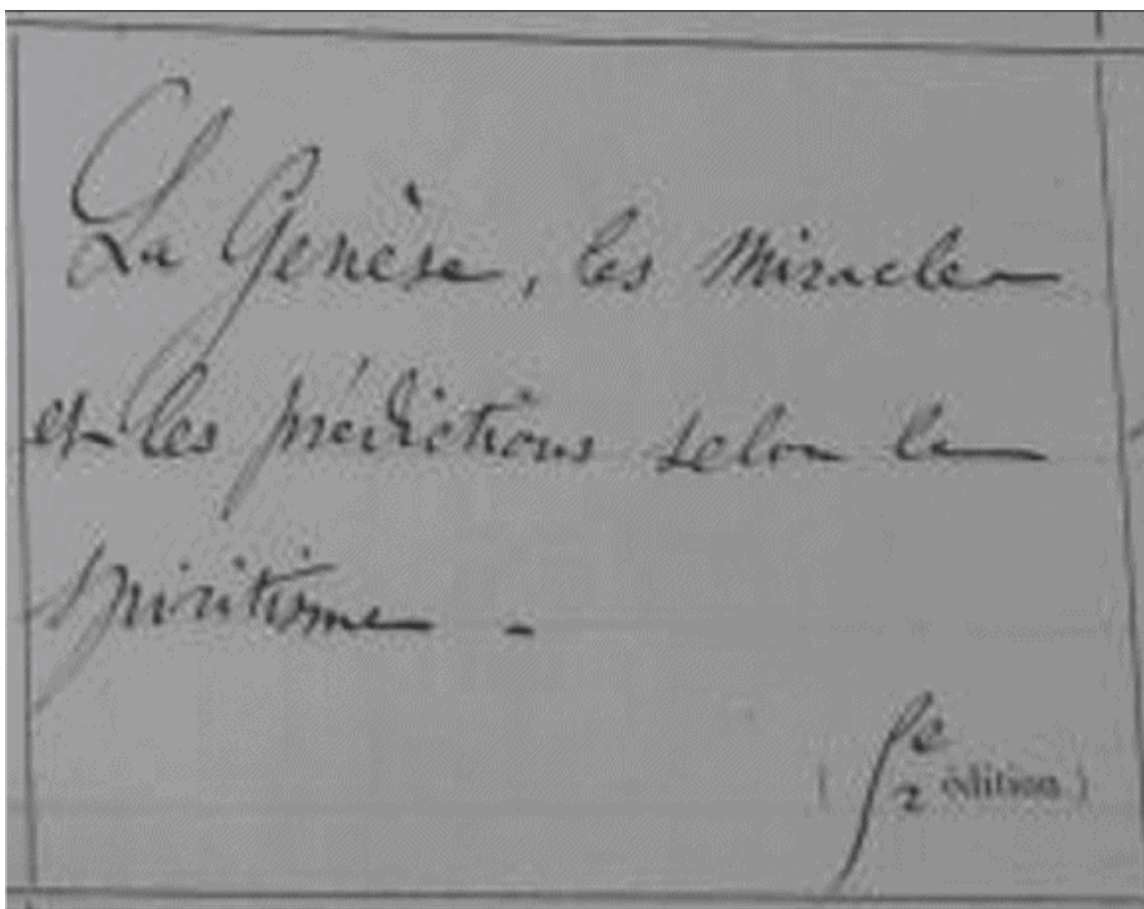 La Genèse, les Miracles
et les prédictions selon le
spiritisme -
( 2e édition.)